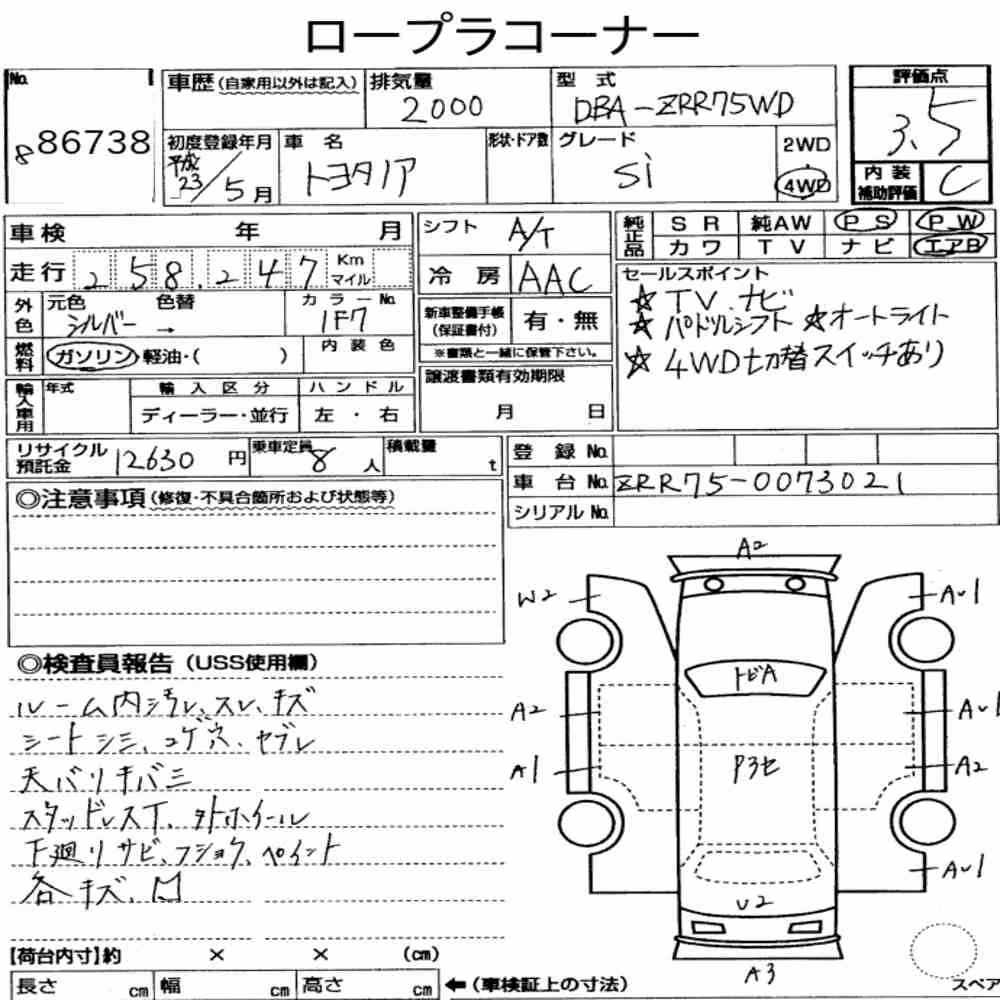 ロープラコーナー
No. 886738
車歴(自家用以外は記入) 排気量 2000 型式 DBA-ZRR75WD 評価点 3.5
初度登録年月 平成23/5月 車名 トヨタノア 形状・ドア数 グレード Si 2WD 4WD
内装補助評価 C
車検 年 月 シフト A/T 純正品 SR 純AW PS PW
カワ TV ナビ エアB
走行 258,247 Km マイル 冷房 AAC
外色 元色 シルバー → 色替 カラーNo. 1F7
新車整備手帳(保証書付) 有・無
※書類と一緒に保管下さい。
燃料 ガソリン・軽油・( ) 内装色
セールスポイント
☆TV.ナビ
☆パドルシフト ☆オートライト
☆4WD切替スイッチあり
輸入車用 年式 輸入区分 ディーラー・並行 ハンドル 左・右
譲渡書類有効期限 月 日
リサイクル預託金 12630円 乗車定員 8人 積載量 t
登録No.
車台No. ZRR75-0073021
シリアルNo.
◎注意事項(修復・不具合箇所および状態等)
◎検査員報告(USS使用欄)
ルーム内汚レ、スレ、キズ
シートシミ、コゲ穴、ヤブレ
天バリキバミ
スタッドレスT、外ホイール
下廻りサビ、フショク、ペイント
各キズ、凹
A2
W2
AU1
トビA
A2
AU1
A1
P3セ
A2
AU1
U2
A3
スペア
【荷台内寸】約 × × (cm)
長さ cm 幅 cm 高さ cm ←(車検証上の寸法)